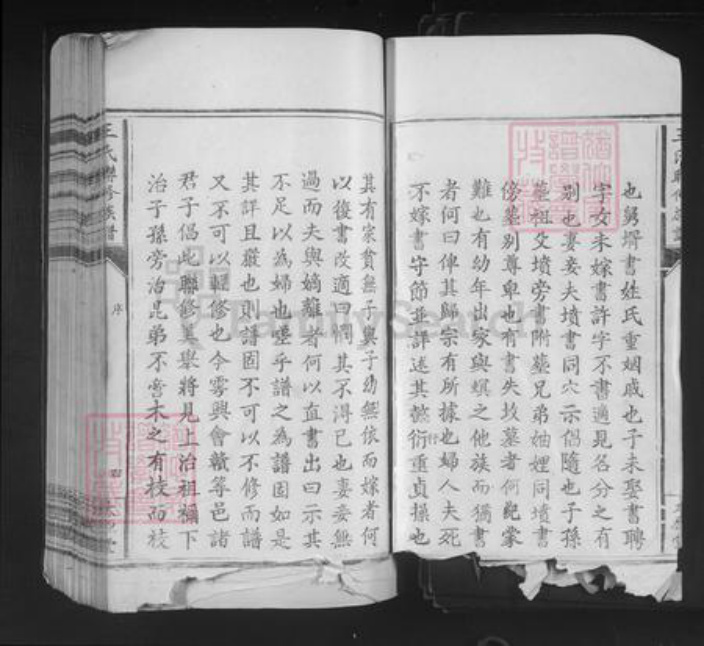 也舅壻書姓氏重姻戚也子未娶書聘
字女未嫁書許字不書適見名分之有
別也妻妾夫墳書同穴示倡隨也子孫
墓祖父墳旁書附墓兄弟妯娌同墳書
傍墓別尊卑也有書失坟墓者何紀蒙
難也有幼年出家與螟之他族而猶書
者何曰俾其歸宗有所據也婦人夫死
不嫁書守節並詳述其懿行重貞操也
其有家貧無子與子幼無依而嫁者何
以後書改適曰憫其不得已也妻妾無
過而夫與嫡離者何以直書出曰示其
不足以為婦也嗟乎譜之為譜固如是
其詳且嚴也則譜固不可以不修而譜
又不可以輕修也今雾興會轍等邑諸
君子倡此聯修美舉將見上治祖禰下
治子孫旁治昆弟不啻木之有枝而枝
王氏聯修族譜
序
四
FamilySearch